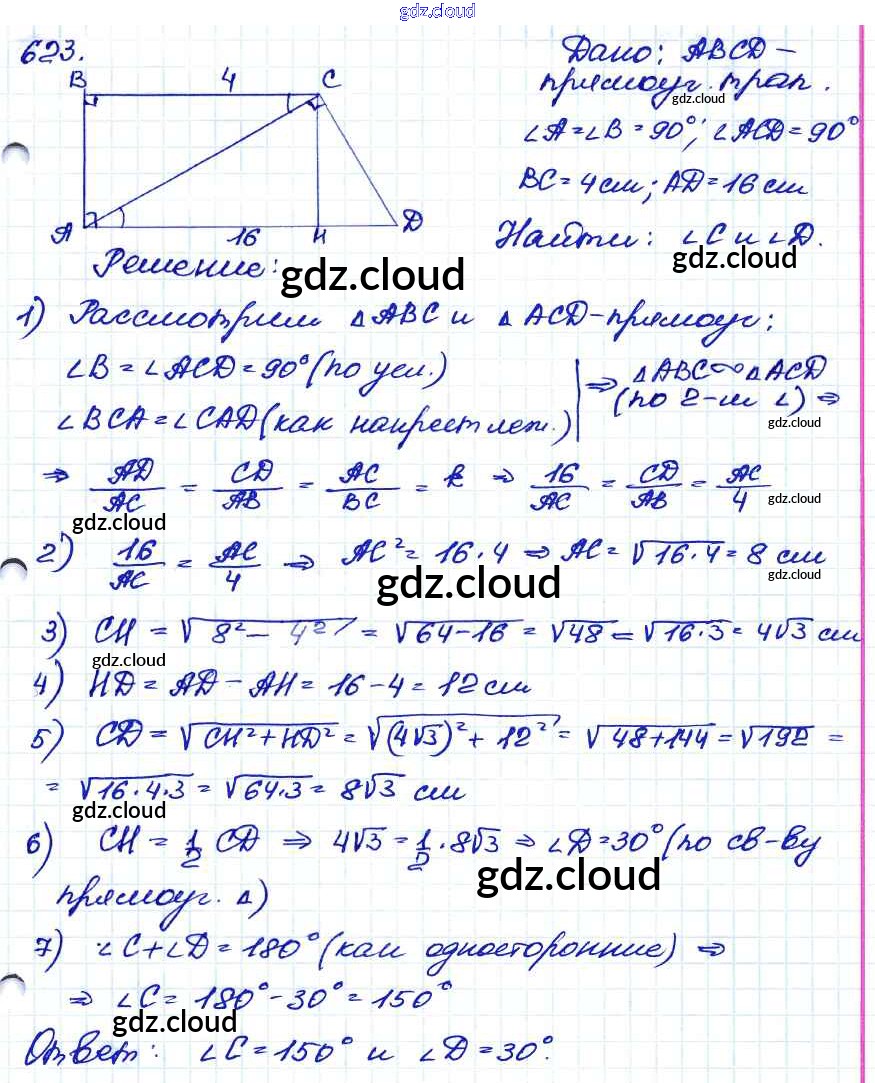 gdz.cloud
623.
B 4 C
A 16 H D
Дано: ABCD –
прямоуг. трап.
gdz.cloud
∠A = ∠B = 90°; ∠ACD = 90°
BC = 4 см; AD = 16 см
Найти: ∠C и ∠D.
gdz.cloud
Решение:
gdz.cloud
1) Рассмотрим △ABC и △ACD – прямоуг:
∠B = ∠ACD = 90° (по усл.)
∠BCA = ∠CAD (как накрест леж.) | ⇒ △ABC ∞ △ACD
(по 2-м ∠) ⇒
gdz.cloud
⇒ AD/AC = CD/AB = AC/BC = k ⇒ 16/AC = CD/AB = AC/4
gdz.cloud
gdz.cloud
2) 16/AC = AC/4 ⇒ AC² = 16·4 ⇒ AC = √16·4 = 8 см
gdz.cloud
gdz.cloud
3) CH = √8² – 4² = √64–16 = √48 = √16·3 = 4√3 см
gdz.cloud
4) HD = AD – AH = 16 – 4 = 12 см
5) CD = √CH² + HD² = √(4√3)² + 12² = √48+144 = √192 =
= √16·4·3 = √64·3 = 8√3 см
gdz.cloud
6) CH = 1/2 CD ⇒ 4√3 = 1/2 · 8√3 ⇒ ∠D = 30° (по св-ву
gdz.cloud
прямоуг. △)
7) ∠C + ∠D = 180° (как односторонние) ⇒
⇒ ∠C = 180° – 30° = 150°
gdz.cloud
Ответ: ∠C = 150° и ∠D = 30°.